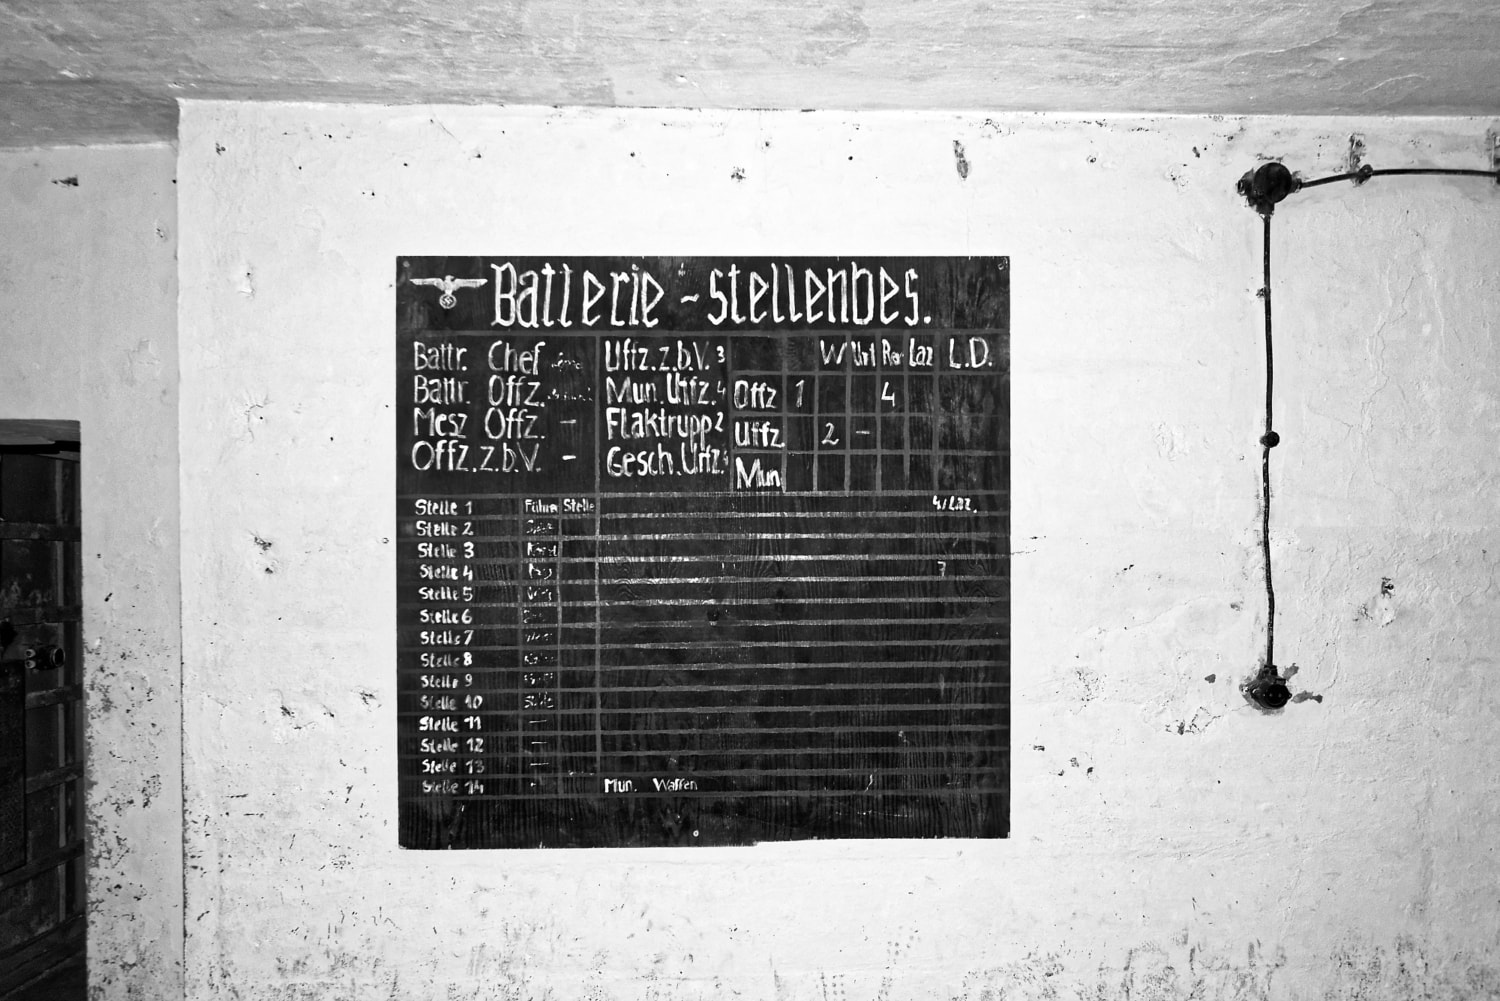 Batterie-stellenbes.
Battr. Chef
Battr. Offz.
Mesz Offz. -
Offz.z.b.V. -
Uffz.z.b.V. 3
Mun.Uffz. 4
Flaktrupp 2
Gesch.Uffz.
W Url Laz L.D.
Offz 1 4
Uffz. 2 -
Mun
Stelle 1 Führer Stelle 4/Laz.
Stelle 2
Stelle 3
Stelle 4 7
Stelle 5
Stelle 6
Stelle 7
Stelle 8
Stelle 9
Stelle 10
Stelle 11 —
Stelle 12 —
Stelle 13 —
Stelle 14 - Mun. Waffen